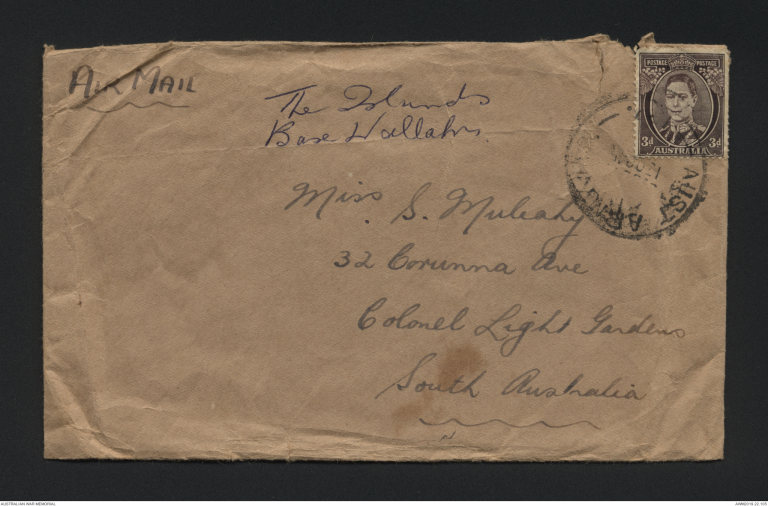 AIR MAIL
The Islunds
Base Wallahs.
Miss S. Mulcahy
32 Corunna Ave
Colonel Light Gardens
South Australia
POSTAGE POSTAGE
3d 3d
AUSTRALIA
AUST
AUSTRALIAN WAR MEMORIAL